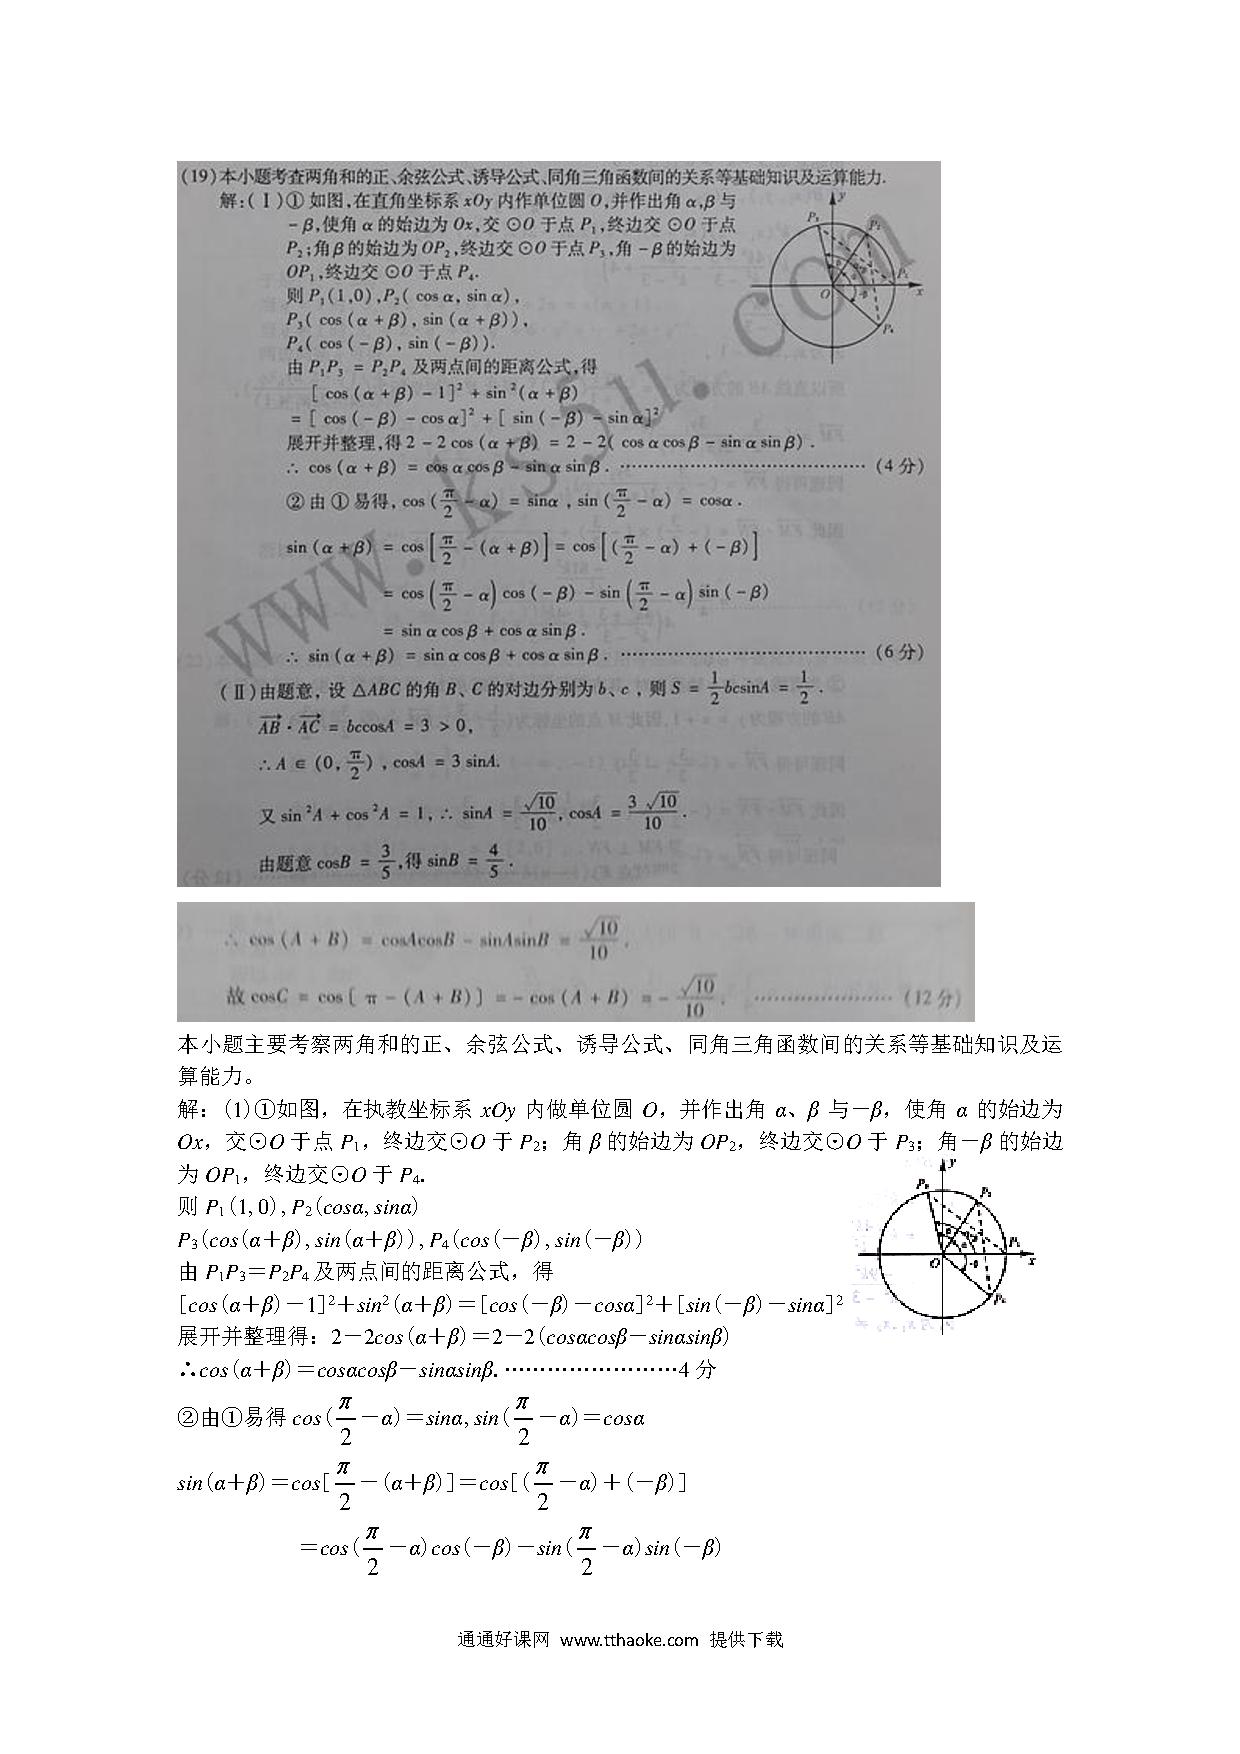 (19)本小题考查两角和的正、余弦公式、诱导公式、同角三角函数间的关系等基础知识及运算能力.
解:(Ⅰ)①如图,在直角坐标系xOy内作单位圆O,并作出角α,β与
-β,使角α的始边为Ox,交⊙O于点P₁,终边交⊙O于点
P₂;角β的始边为OP₂,终边交⊙O于点P₃,角-β的始边为
OP₁,终边交⊙O于点P₄.
则P₁(1,0),P₂(cosα,sinα),
P₃(cos(α+β),sin(α+β)),
P₄(cos(-β),sin(-β)).
由P₁P₃=P₂P₄及两点间的距离公式,得
[cos(α+β)-1]²+sin²(α+β)
=[cos(-β)-cosα]²+[sin(-β)-sinα]²
展开并整理,得2-2cos(α+β)=2-2(cosαcosβ-sinαsinβ).
∴cos(α+β)=cosαcosβ-sinαsinβ.……………………………(4分)
②由①易得,cos(π/2-α)=sinα,sin(π/2-α)=cosα.
sin(α+β)=cos[π/2-(α+β)]=cos[(π/2-α)+(-β)]
=cos(π/2-α)cos(-β)-sin(π/2-α)sin(-β)
=sinαcosβ+cosαsinβ.
∴sin(α+β)=sinαcosβ+cosαsinβ.……………………………(6分)
(Ⅱ)由题意,设△ABC的角B、C的对边分别为b、c,则S=1/2bcsinA=1/2.
AB·AC=bccosA=3>0,
∴A∈(0,π/2),cosA=3sinA.
又sin²A+cos²A=1,∴sinA=√10/10,cosA=3√10/10.
由题意cosB=3/5,得sinB=4/5.
y
P₃
P₂
P₁
O
x
P₄
www.ks5u.com
∴cos(A+B)=cosAcosB-sinAsinB=√10/10.
故cosC=cos[π-(A+B)]=-cos(A+B)=-√10/10.…………………(12分)
本小题主要考察两角和的正、余弦公式、诱导公式、同角三角函数间的关系等基础知识及运
算能力。
解：(1)①如图，在执教坐标系xOy内做单位圆O，并作出角α、β与－β，使角α的始边为
Ox，交⊙O于点P₁，终边交⊙O于P₂；角β的始边为OP₂，终边交⊙O于P₃；角－β的始边
为OP₁，终边交⊙O于P₄.
则P₁(1,0),P₂(cosα,sinα)
P₃(cos(α＋β),sin(α＋β)),P₄(cos(－β),sin(－β))
由P₁P₃＝P₂P₄及两点间的距离公式，得
[cos(α＋β)－1]²＋sin²(α＋β)＝[cos(－β)－cosα]²＋[sin(－β)－sinα]²
展开并整理得：2－2cos(α＋β)＝2－2(cosαcosβ－sinαsinβ)
∴cos(α＋β)＝cosαcosβ－sinαsinβ.……………………4分
②由①易得cos(π/2－α)＝sinα,sin(π/2－α)＝cosα
sin(α＋β)＝cos[π/2－(α＋β)]＝cos[(π/2－α)＋(－β)]
＝cos(π/2－α)cos(－β)－sin(π/2－α)sin(－β)
y
P₂
P₁
O
x
通通好课网 www.tthaoke.com 提供下载